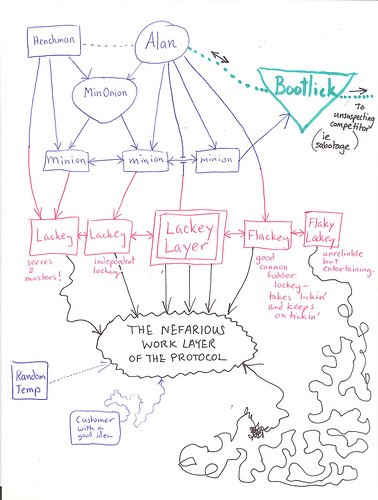 Henchman
Alan
MinOnion
Bootlick
To
unsuspecting
competitor
(ie
sabotage)
minion
minion
minion
Lackey
Lackey
Lackey
Layer
Flackey
Flaky
Lakey
serves
2
masters!
independent
lackey
good
cannon
fodder
lackey-
takes lickin'
and keeps
on tickin'
unreliable
but
entertaining.
THE NEFARIOUS
WORK LAYER
OF THE PROTOCOL
Random
Temp
Customer
with a
good idea